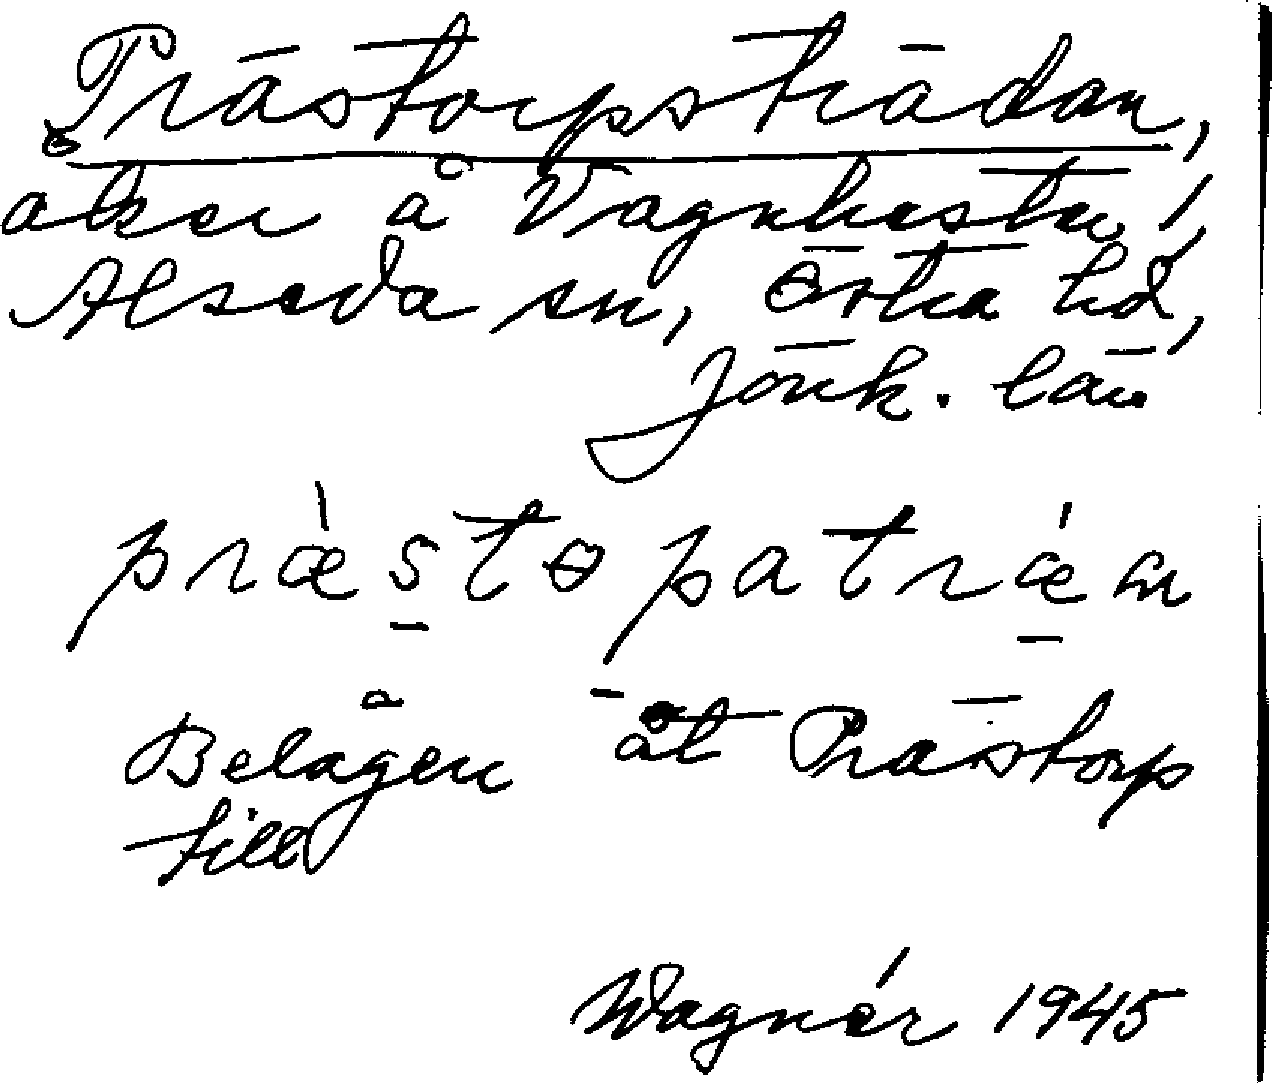 Prästorpsträdan,
åker å Vagnhester i
Alseda sn, Östra hd,
Jönk. län
prǽstɵpatrǽan
Belägen åt Prästorp
till
Wagnér 1945